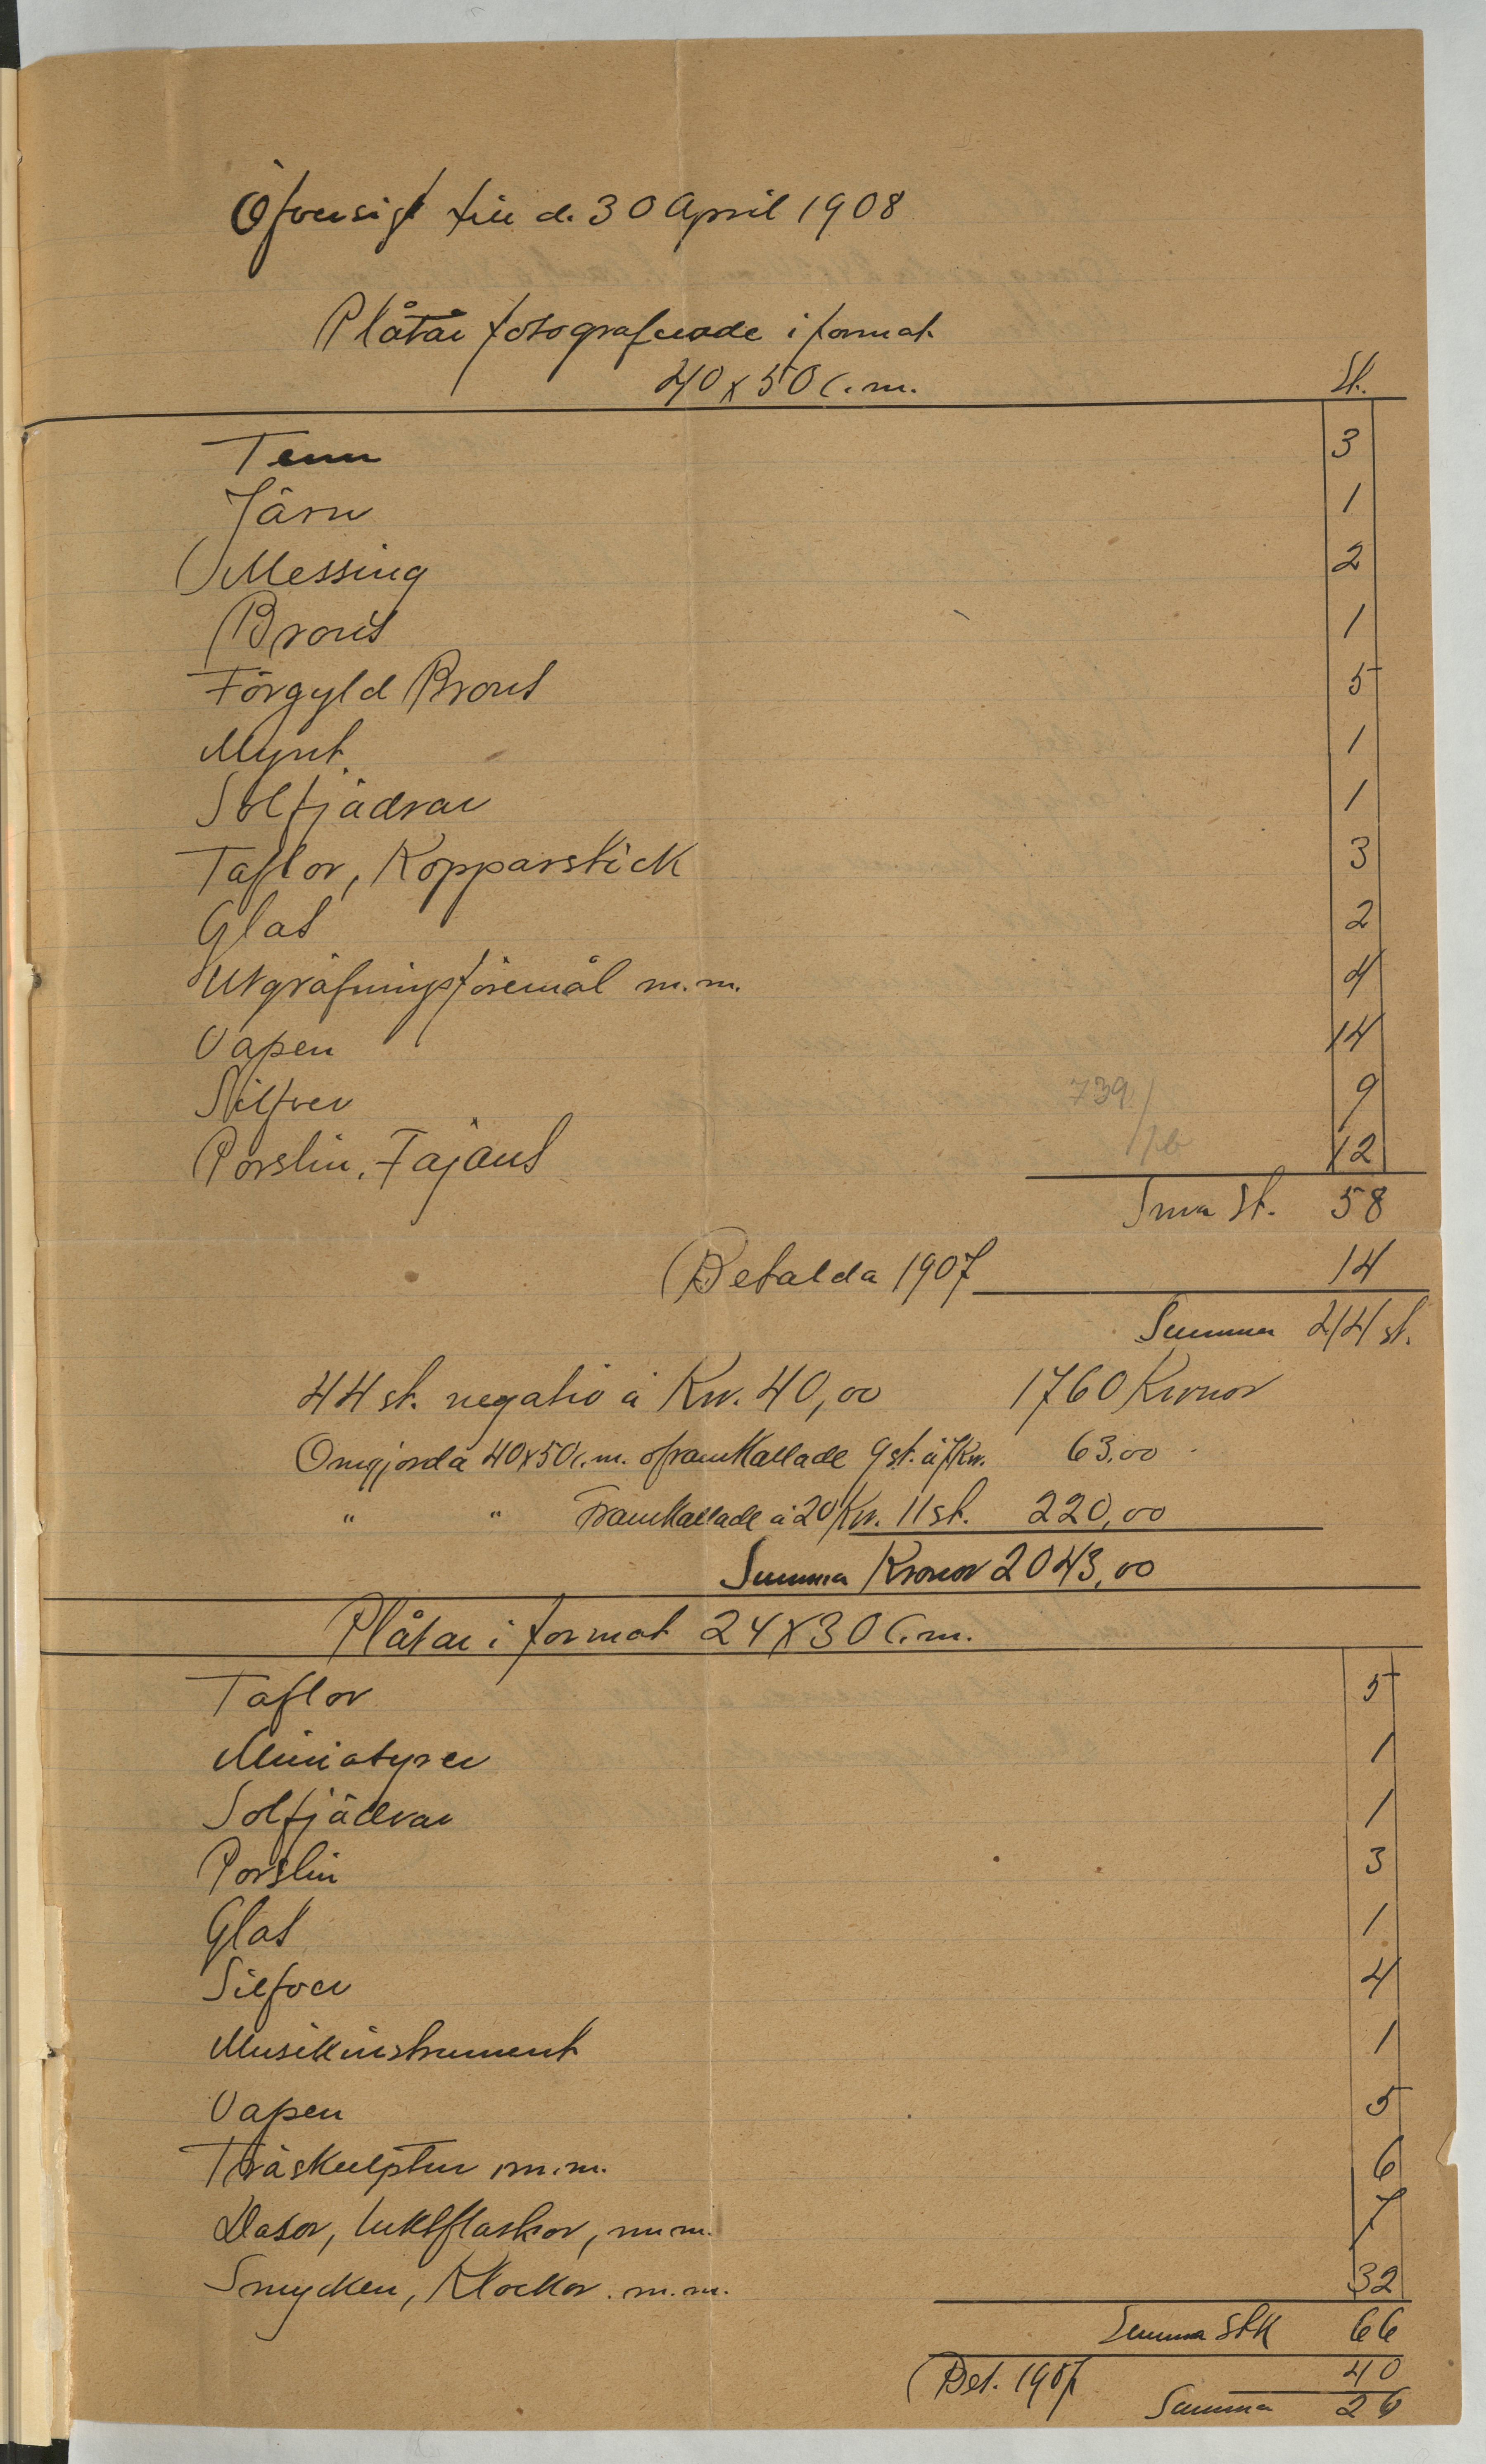 Öfversigt till d. 30 April 1908
Plåtar fotograferade i format
40 x 50 c.m.
St.
Tenn 3
Järn 1
Messing 2
Brons 1
Förgyld Brons 5
Mynt 1
Solfjädrar 1
Taflor, Kopparstick 3
Glas 2
Utgräfningsföremål m.m. 4
Vapen 14
Silfver 9
739
Porslin, Fajans 12
Sma St. 58
Betalda 1907 14
Summa 44 st.
44 st. negativ á Kr. 40,00 1760 Kronor
Omgjorda 40x50 c.m. oframkallade 9 st. á 7 Kr. 63,00
" " Framkallade á 20 Kr. 11 st. 220,00
Summa Kronor 2043,00
Plåtar i format 24x30 c.m.
Taflor 5
Miniatyrer 1
Solfjädrar 1
Porslin 3
Glas 1
Silfver 4
Musikinstrument 1
Vapen 5
Träskulptur m.m. 6
Dosor, luktflaskor, m.m. 7
Smycken, Klockor m.m. 32
Summa Stk 66
Bet. 1907 40
Summa 26